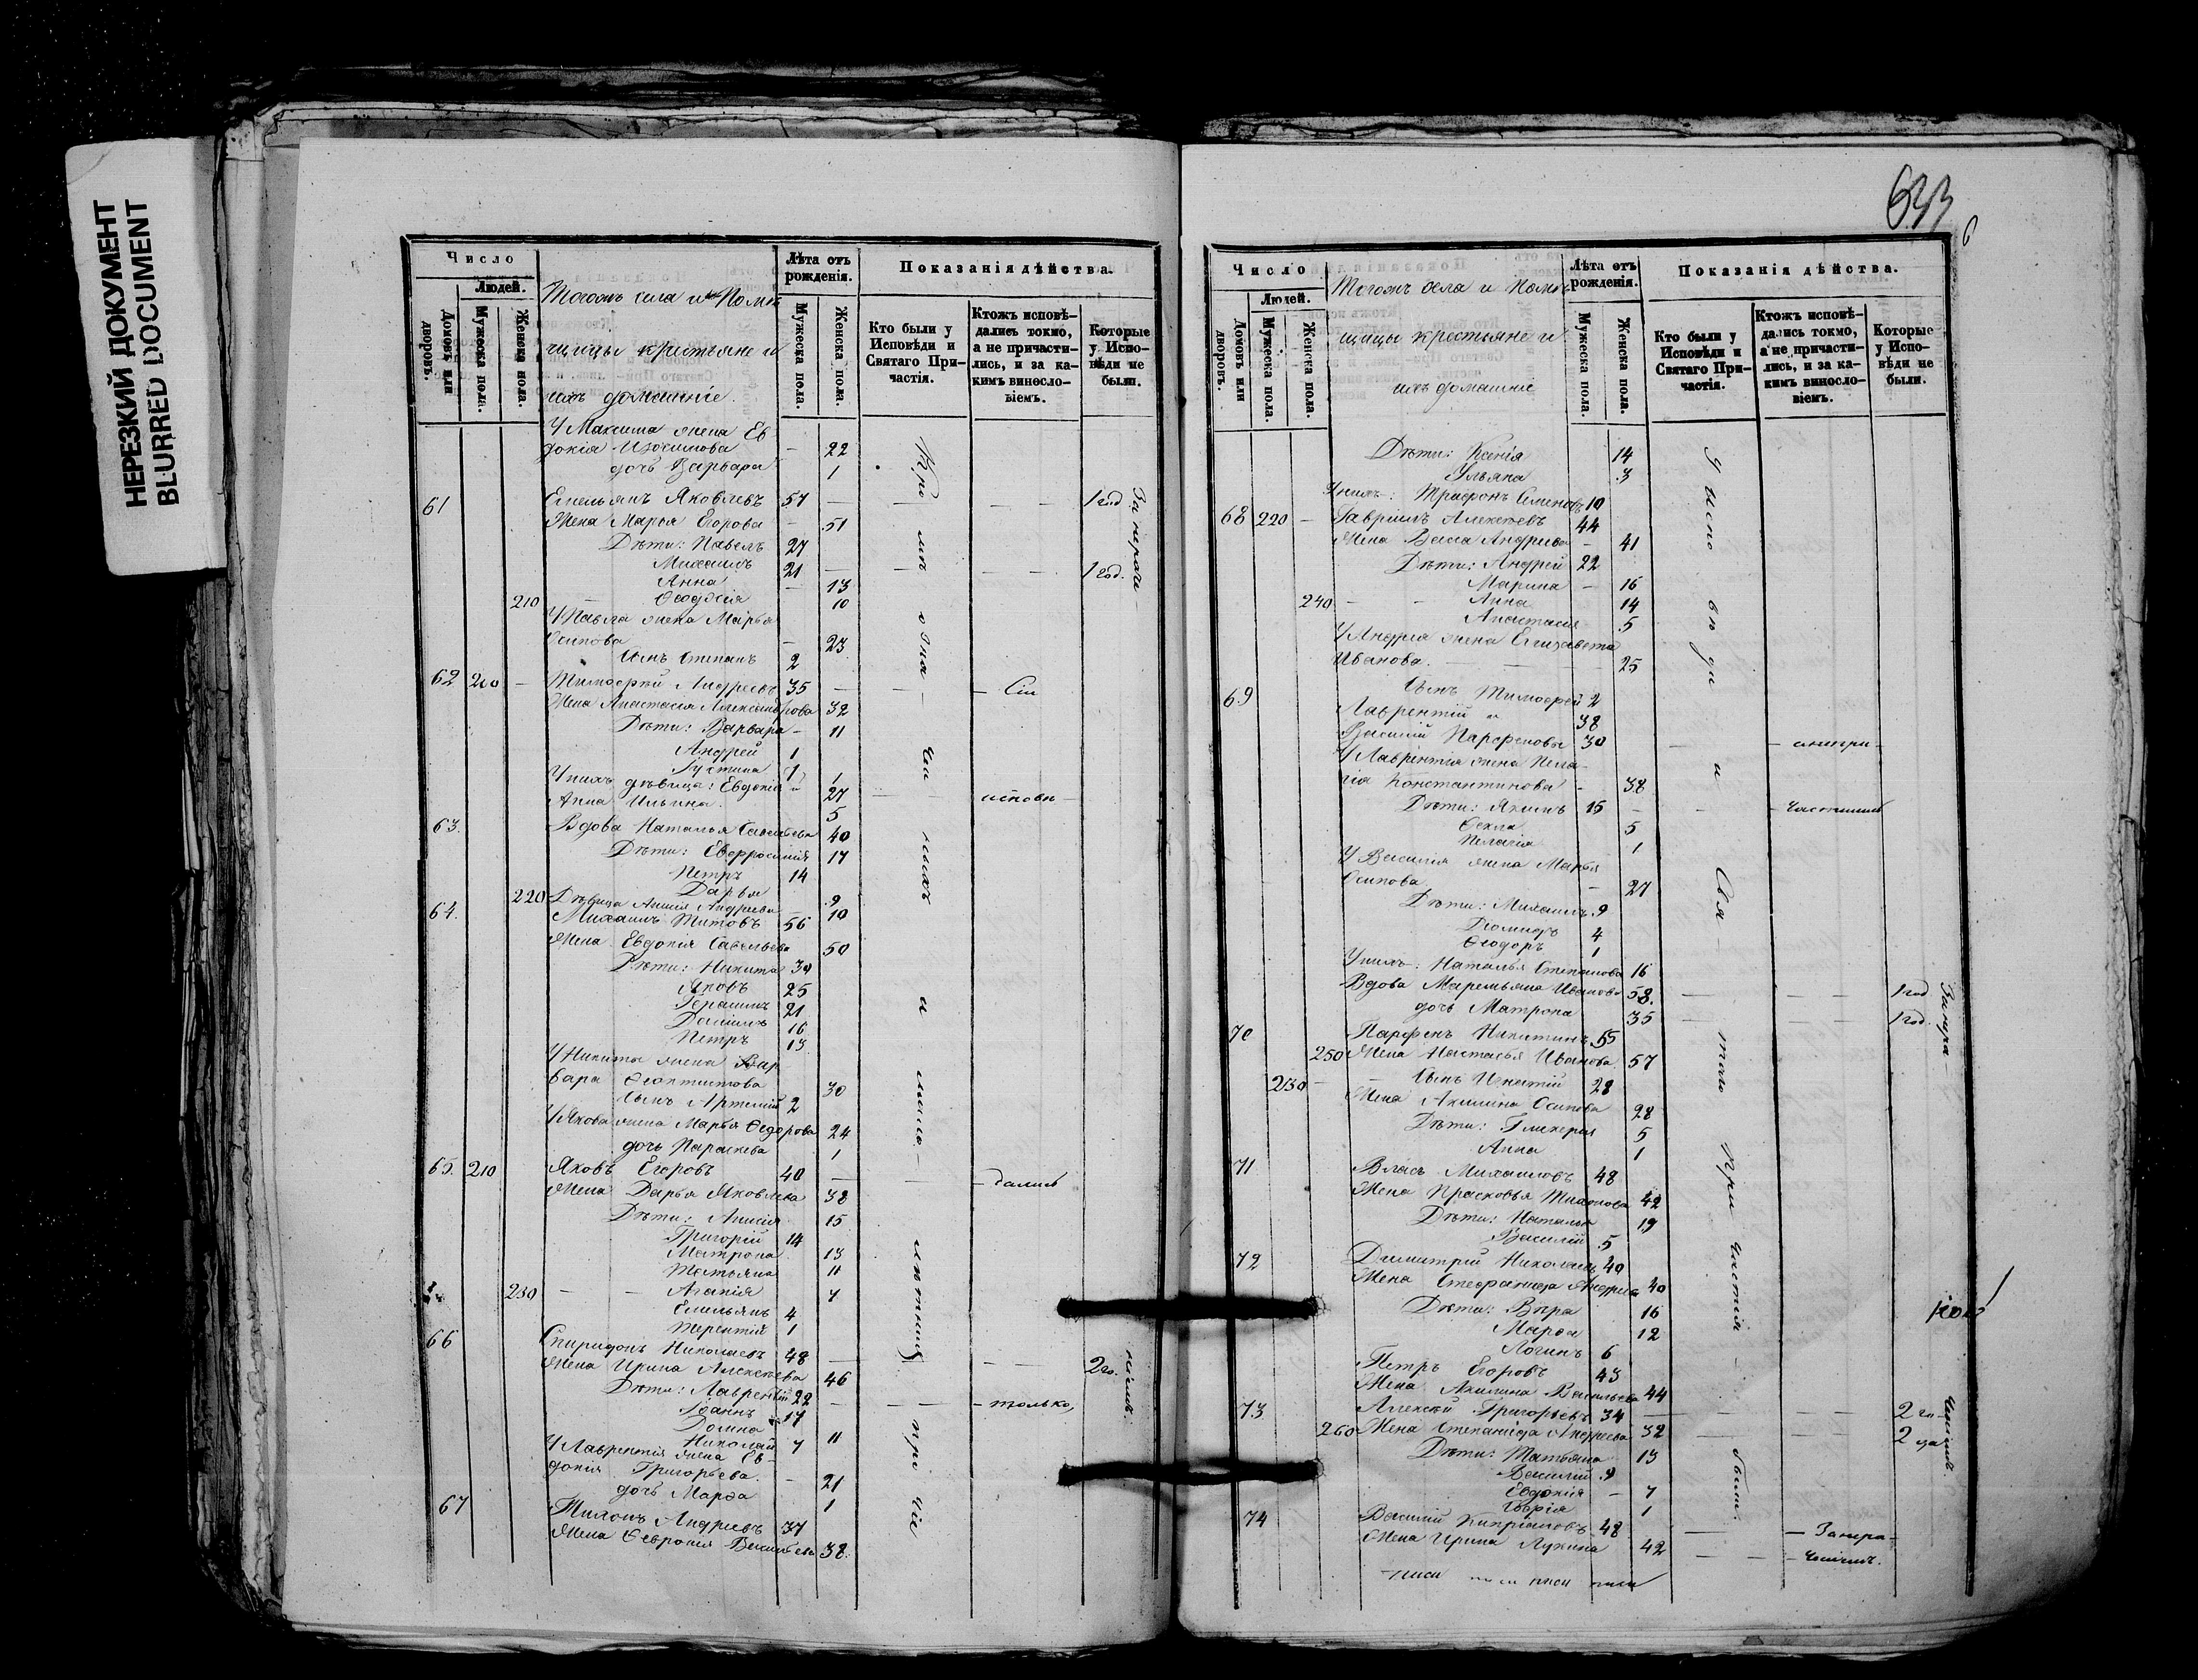 НЕРЕЗКИЙ ДОКУМЕНТ
BLURRED DOCUMENT
Число
Людей.
Домовъ или дворовъ.
Мужеска пола.
Женска пола.
Тогожъ села и Помѣ
щицы крестьяне и
ихъ домашніе.
Лѣта отъ рожденія.
Мужеска пола.
Женска пола.
Показанія дѣйства.
Кто были у Исповѣди и Святаго Причастія.
Ктожъ исповѣдались токмо, а не причастились, и за какимъ винословіемъ.
Которые у Исповѣди не были.
У Максима жена Ев
докія Изосимова - 22
дочь Варвара 1
61 Емельянъ Яковлевъ 57 — — — 1 год
Жена Марья Егорова - 51
Дѣти: Павелъ 27
Михаилъ 21 — — — 1 год.
Анна - 13
210 - Ѳеодосія 10
У Павла жена Марья
Осипова - 23
Сынъ Степанъ 2
62 200 - Тимофей Андреевъ 35 — — — Сіи
Жена Анастасія Александрова 32
Дѣти: Варвара - 11
Андрей 1
Іустина (1) 1
У нихъ дѣвица: Евдокія 27 — исповѣ
Анна Ильина. 5
63. Вдова Наталья Савельева 40
Дѣти: Евфросинія 17
Петръ 14
Дарья 9
220 Дѣвица Анисія Андреева 10
64. Михаилъ Титовъ 56
Жена Евдокія Савельева 50
Дѣти: Никита 30
Яковъ 25
Герасимъ 21
Даніилъ 16
Петръ 13
У Никиты жена Вар
вара Ѳеоктистова 30
Сынъ Артемій 2
У Якова жена Марья Ѳедорова 24
дочь Параскева 1
65. 210 Яковъ Егоровъ 40 — — — дались
Жена Дарья Яковлева 38
Дѣти: Анисія 15
Григорій 14
Матрона 13
Татьяна 11
230 — — Агапія 7
Емельянъ 4
Терентій 1
66 Спиридонъ Николаевъ 48 — — — 2 го.
Жена Ирина Алексѣева 46
Дѣти: Лаврентій 22
Іоаннъ 17 — — — только,
Домна 11
Николай 7
У Лаврентія жена Ев-
докія Григорьева. - 21
дочь Марѳа 1
67 Тихонъ Андреевъ 37
Жена Ѳевронія Васильева 38.
Кро мѣ озна чен ныхъ и мало лѣтнихъ про чіе
За нераче
ніемъ.
633
6
Число
Людей.
Домовъ или дворовъ.
Мужеска пола.
Женска пола.
Тогожъ села и Помѣ
щицы крестьяне и
ихъ домашніе
Лѣта отъ рожденія.
Мужеска пола.
Женска пола.
Показанія дѣйства.
Кто были у Исповѣди и Святаго Причастія.
Ктожъ исповѣдались токмо, а не причастились, и за какимъ винословіемъ.
Которые у Исповѣди не были.
Дѣти: Ксенія 14
Ульяна 3
У нихъ: Трифонъ Семеновъ 10
68 220 - Гавріилъ Алексѣевъ 44
Жена Васса Андреева - 41
Дѣти: Андрей 22
Марина - 16
240 - - Анна 14
Анастасія 5
У Андрея жена Елизавета
Иванова. — — 25
Сынъ Тимофей 2
69 Лаврентій " 38
Василій Парфеновы 30 — — анепри-
У Лаврентія жена Пела-
гія Константинова - 38
Дѣти: Якимъ 15 - - - частились
Ѳекла 5
Пелагія 1
У Василія жена Марья
Осипова - 27
Дѣти: Михаилъ 9
Діомидъ 4
Ѳеодоръ 1
У нихъ: Наталья Степанова 16
Вдова Маремьяна Иванова 58. — — — 1 год
дочь Матрона 35 — — — 1 год.
70 Парфенъ Никитинъ 55
250 Жена Настасья Иванова 57
230 - - Сынъ Игнатій 28
Жена Акилина Осипова 28
Дѣти: Гликерія 5
Анна 1
71 Власъ Михаиловъ 48
Жена Прасковья Тихонова 42
Дѣти: Наталья 19
Василій 5
72 Димитрій Николаевъ 40
Жена Стефанида Андреева 40
Дѣти: Вѣра 16
Марѳа 12
Логинъ 6
Петръ Егоровъ 43
Жена Акилина Васильева 44
73 Алексѣй Григорьевъ 34 — — — 2 го
260 Жена Степанида Андреева 32 — — — 2 го
Дѣти: Татьяна 13
Василій 9
Евдокія - 7
Марія 1
74 Василій Кипріановъ 48 — — Занера-
Жена Ирина Лукина 42 — — — ченіемъ.
У испо вѣ ди и Свя- таго При частія - были.
Занера-
ченіемъ.